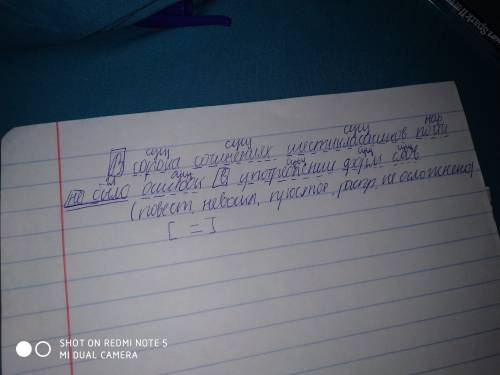 сущ сущ сущ нар
В сорока сочинениях шестиклассников почти
сущ сущ сущ сущ
не было ошибок в употреблении форм слов
(повест, невоскл, простое, распр, не осложнено)
[ = ]
SHOT ON REDMI NOTE 5
MI DUAL CAMERA